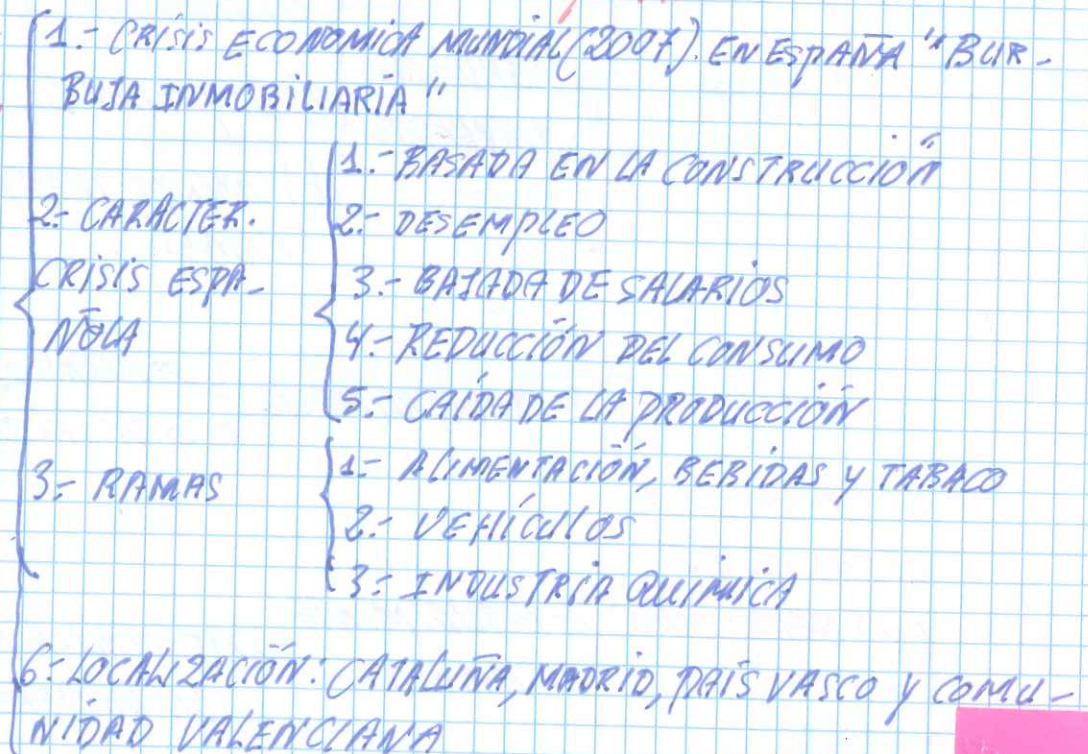 1.- CRÍSIS ECONOMICA MUNDIAL (2007). EN ESPAÑA "BUR-
BUJA INMOBILIARIA"
1.- BASADA EN LA CONSTRUCCIÓN
2.- CARÁCTER.
2.- DESEMPLEO
CRISIS ESPA-
3.- BAJADA DE SALARIOS
ÑOLA
4.- REDUCCIÓN DEL CONSUMO
5.- CAÍDA DE LA PRODUCCIÓN
3.- RAMAS
1.- ALIMENTACIÓN, BEBIDAS Y TABACO
2.- VEHÍCULOS
3.- INDUSTRIA QUIMICA
6.- LOCALIZACIÓN: CATALUÑA, MADRID, PAÍS VASCO Y COMU-
NIDAD VALENCIANA